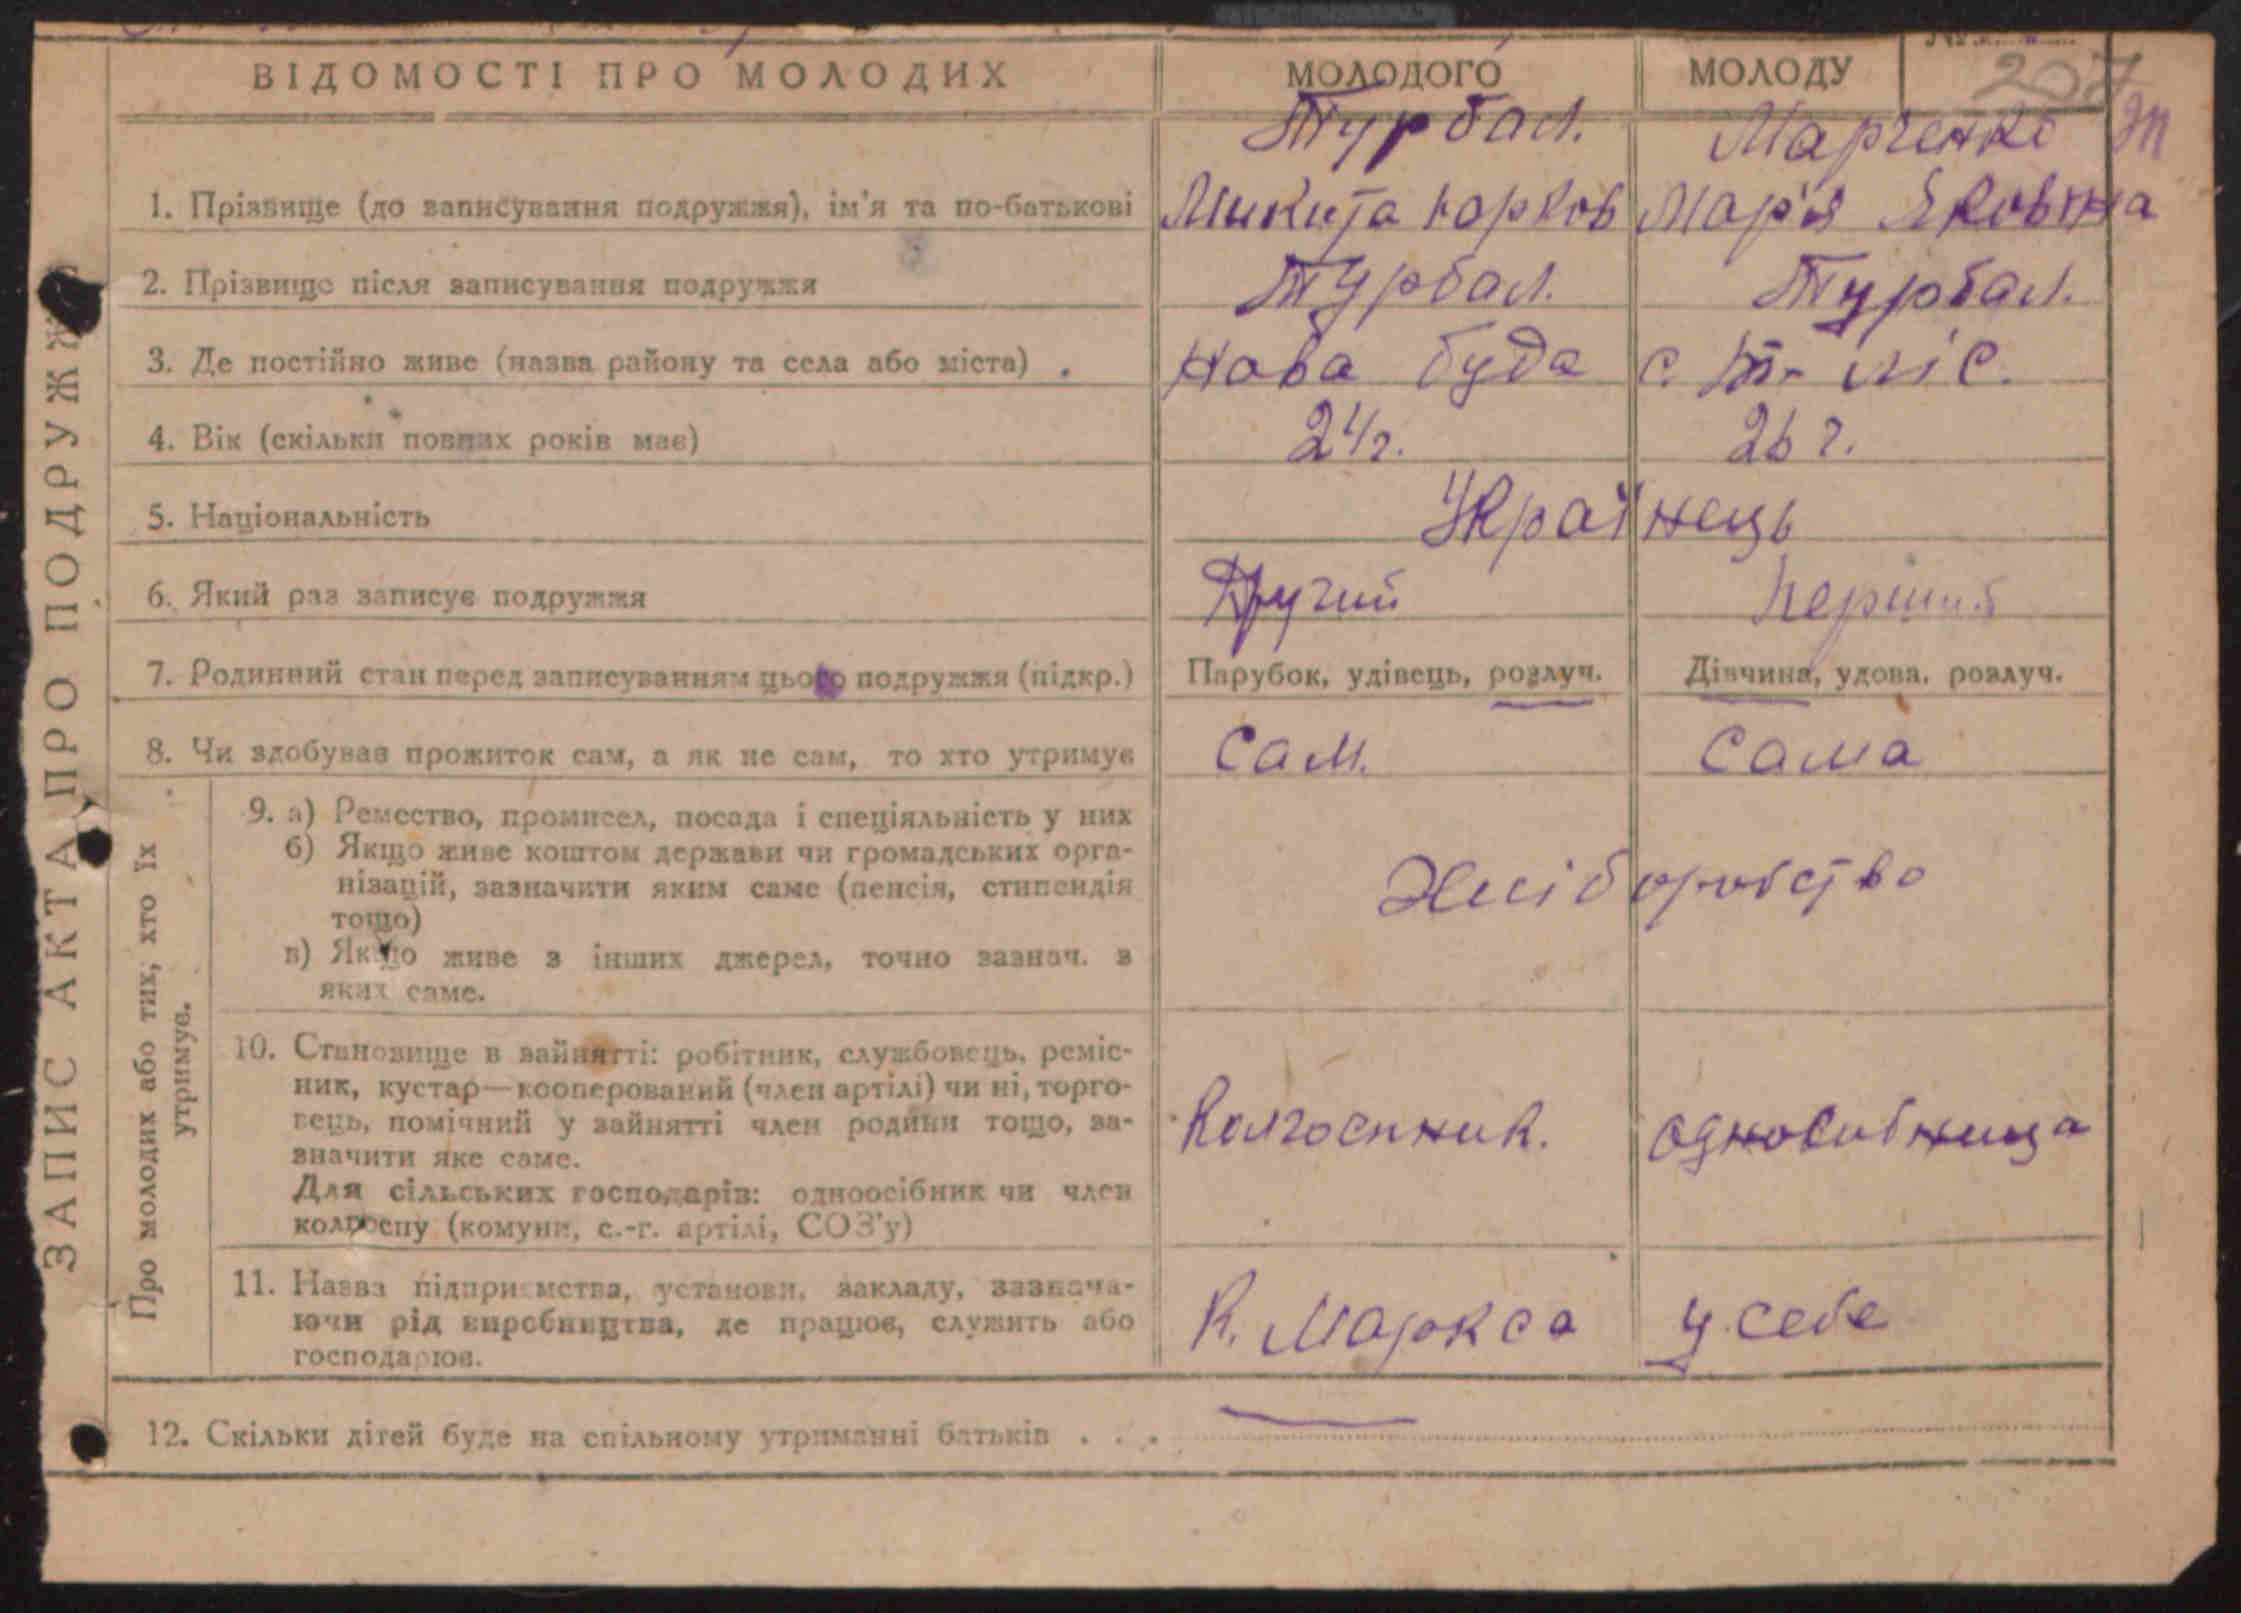 ЗАПИС АКТА ПРО ПОДРУЖЖ
ВІДОМОСТІ ПРО МОЛОДИХ
МОЛОДОГО
МОЛОДУ
207
1. Прізвище (до записування подружжя), ім'я та по-батькові
Турбал.
Микита Юрков
Марченко
Мар'я Яковвна
2. Прізвище після записування подружжя
Турбал.
Турбал.
3. Де постійно живе (назва району та села або міста) .
Нова буда
с. ліс.
4. Вік (скільки повних років має)
24 г.
26 г.
5. Національність
Українець
6. Який раз записує подружжя
Другий
Перший
7. Родинний стан перед записуванням цього подружжя (підкр.)
Парубок, удівець, розлуч.
Дівчина, удова, розлуч.
8. Чи здобував прожиток сам, а як не сам, то хто утримує
Сам.
Сама
Про молодих або тих, хто їх
утримує.
9. а) Ремество, промисел, посада і спеціяльність у них
б) Якщо живе коштом держави чи громадських орга-
нізацій, зазначити яким саме (пенсія, стипендія
тощо)
в) Якщо живе з інших джерел, точно зазнач. з
яких саме.
Хліборобство
10. Становище в зайнятті: робітник, службовець, реміс-
ник, кустар—кооперований (член артілі) чи ні, торго-
вець, помічний у зайнятті член родини тощо, за-
значити яке саме.
Для сільських господарів: одноосібник чи член
колгоспу (комуни, с.-г. артілі, СОЗ'у)
Колгоспник.
односибница
11. Назва підприємства, установи, закладу, зазнача-
ючи рід виробництва, де працює, служить або
господарює.
К. Маркса
у себе
12. Скільки дітей буде на спільному утриманні батьків . . .